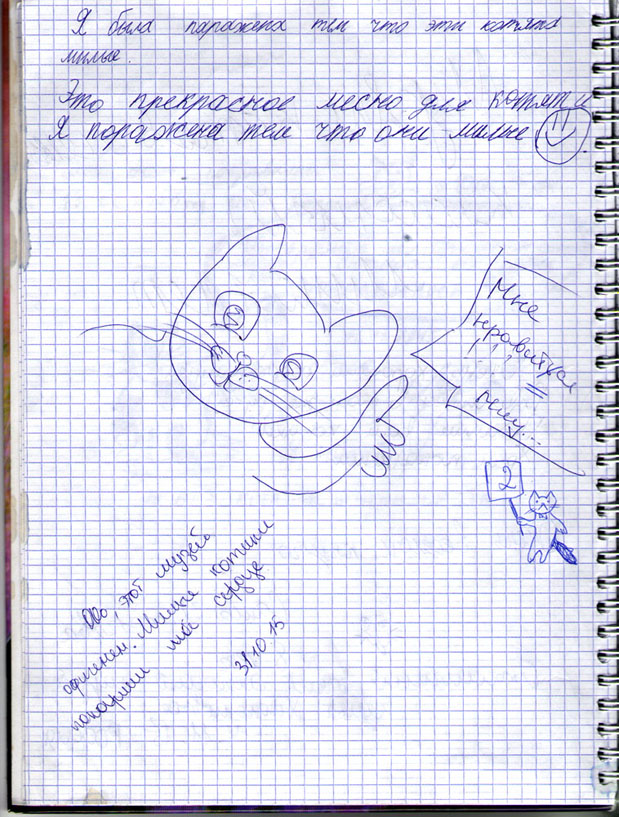 Я была поражена тем что эти котята
милые.
Это прекрасное место для котят и
Я поражена тем что они милые
Мне
нравиться
!!!
=
пишу...
2
Ооо, этот музей
офигенен. Милые котики
покорили моё сердце
31.10.15